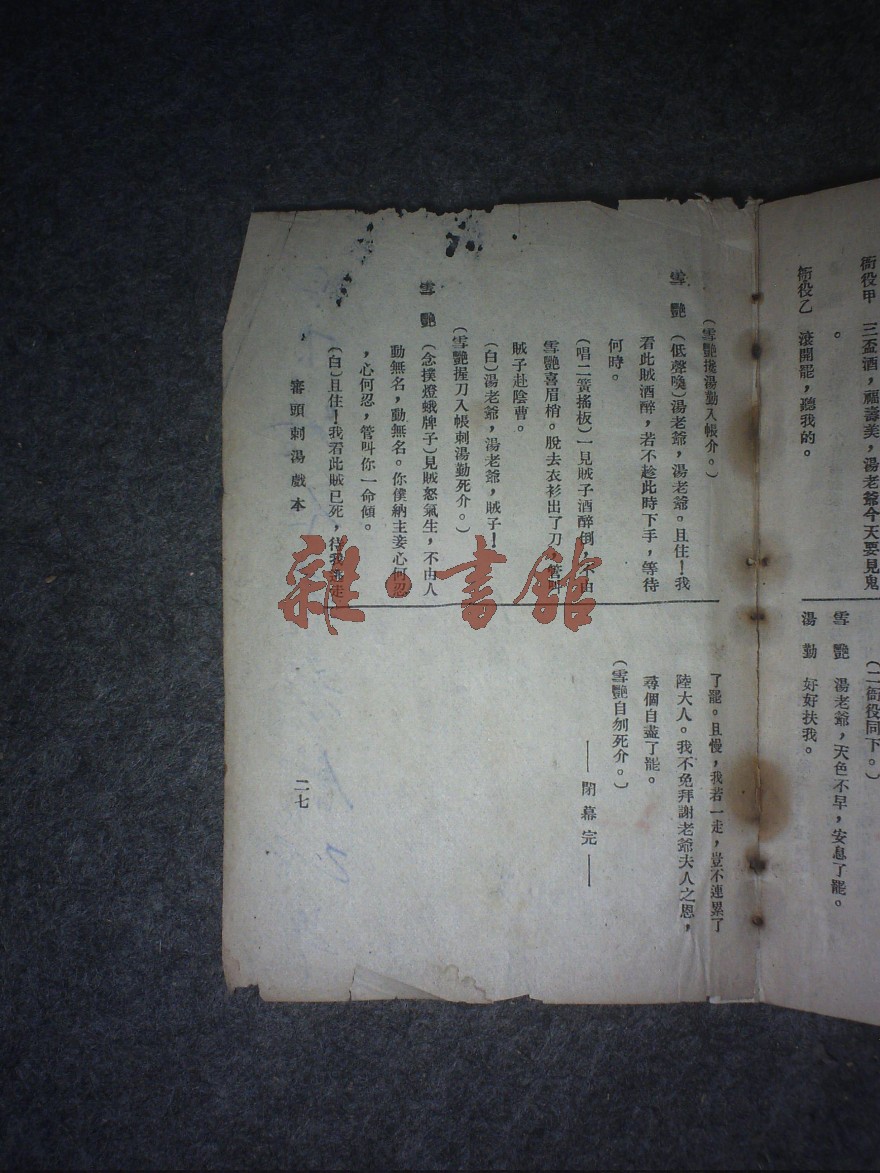 衙役甲　三盃酒，福壽美，湯老爺今天要見鬼
。
衙役乙　滾開罷，聽我的。
（二衙役同下。）
雪　艷　湯老爺，天色不早，安息了罷。
湯　勤　好好扶我。
（雪艷攙湯勤入帳介。）
雪　艷（低聲喚）湯老爺，湯老爺。且住！我
看此賊酒醉，若不趁此時下手，等待
何時。
（唱二簧搖板）一見賊子酒醉倒，不由
雪艷喜眉梢。脫去衣衫出了刀，管叫
賊子赴陰曹。
（白）湯老爺，湯老爺，賊子！
（雪艷握刀入帳刺湯勤死介。）
雪　艷（念撲燈蛾牌子）見賊怒氣生，不由人
動無名，動無名。你僕納主妾心何忍
，心何忍，管叫你一命傾。
（白）且住！我看此賊已死，待我逃走
了罷。且慢，我若一走，豈不連累了
陸大人。我不免拜謝老爺夫人之恩，
尋個自盡了罷。
（雪艷自刎死介。）
——閉幕完——
審頭刺湯戲本
二七
雜·書館